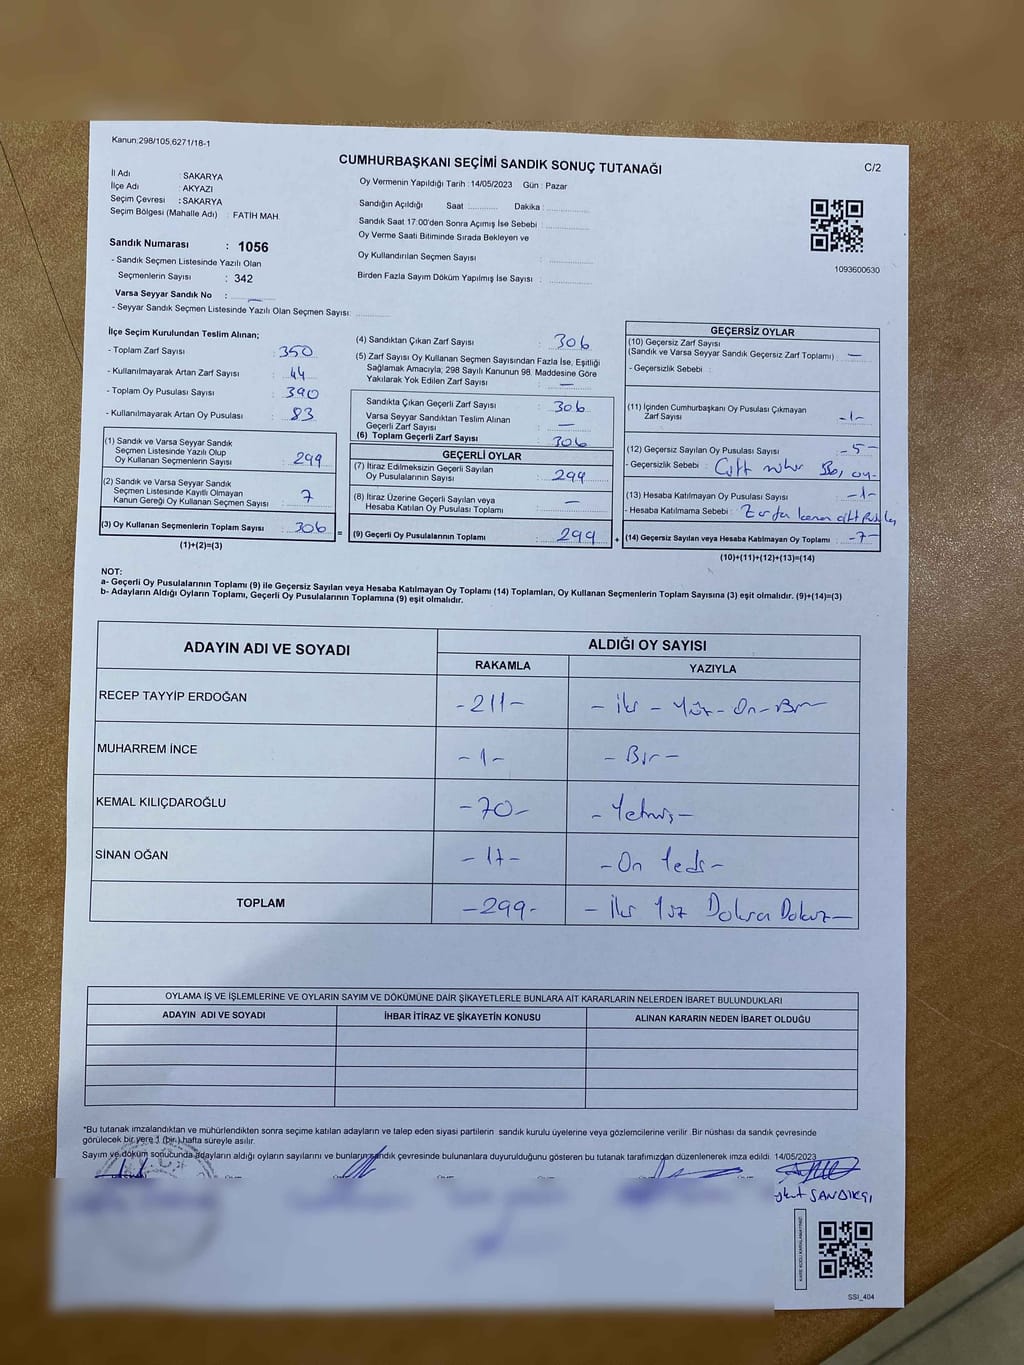 Kanun:298/105,6271/18-1
CUMHURBAŞKANI SEÇİMİ SANDIK SONUÇ TUTANAĞI
C/2
İl Adı : SAKARYA
İlçe Adı : AKYAZI
Seçim Çevresi : SAKARYA
Seçim Bölgesi (Mahalle Adı) : FATİH MAH.
Sandık Numarası : 1056
- Sandık Seçmen Listesinde Yazılı Olan
Seçmenlerin Sayısı : 342
Varsa Seyyar Sandık No : —
- Seyyar Sandık Seçmen Listesinde Yazılı Olan Seçmen Sayısı:
Oy Vermenin Yapıldığı Tarih :14/05/2023 Gün : Pazar
Sandığın Açıldığı Saat : Dakika :
Sandık Saat 17:00'den Sonra Açımış İse Sebebi :
Oy Verme Saati Bitiminde Sırada Bekleyen ve
Oy Kullandırılan Seçmen Sayısı :
Birden Fazla Sayım Döküm Yapılmış İse Sayısı :
1093600630
İlçe Seçim Kurulundan Teslim Alınan;
- Toplam Zarf Sayısı : 350
- Kullanılmayarak Artan Zarf Sayısı : 44
- Toplam Oy Pusulası Sayısı : 390
- Kullanılmayarak Artan Oy Pusulası : 83
(1) Sandık ve Varsa Seyyar Sandık
Seçmen Listesinde Yazılı Olup
Oy Kullanan Seçmenlerin Sayısı : 299
(2) Sandık ve Varsa Seyyar Sandık
Seçmen Listesinde Kayıtlı Olmayan
Kanun Gereği Oy Kullanan Seçmen Sayısı : 7
(3) Oy Kullanan Seçmenlerin Toplam Sayısı : 306
(1)+(2)=(3)
(4) Sandıktan Çıkan Zarf Sayısı : 306
(5) Zarf Sayısı Oy Kullanan Seçmen Sayısından Fazla İse, Eşitliği
Sağlamak Amacıyla; 298 Sayılı Kanunun 98. Maddesine Göre
Yakılarak Yok Edilen Zarf Sayısı : —
Sandıkta Çıkan Geçerli Zarf Sayısı : 306
Varsa Seyyar Sandıktan Teslim Alınan
Geçerli Zarf Sayısı : —
(6) Toplam Geçerli Zarf Sayısı : 306
GEÇERLİ OYLAR
(7) İtiraz Edilmeksizin Geçerli Sayılan
Oy Pusulalarının Sayısı : 299
(8) İtiraz Üzerine Geçerli Sayılan veya
Hesaba Katılan Oy Pusulası Toplamı : —
= (9) Geçerli Oy Pusulalarının Toplamı : 299 +
GEÇERSİZ OYLAR
(10) Geçersiz Zarf Sayısı
(Sandık ve Varsa Seyyar Sandık Geçersiz Zarf Toplamı) : —
- Geçersizlik Sebebi :
(11) İçinden Cumhurbaşkanı Oy Pusulası Çıkmayan
Zarf Sayısı : -1-
(12) Geçersiz Sayılan Oy Pusulası Sayısı : -5-
- Geçersizlik Sebebi : Çift mühür
(13) Hesaba Katılmayan Oy Pusulası Sayısı : -1-
- Hesaba Katılmama Sebebi :
(14) Geçersiz Sayılan veya Hesaba Katılmayan Oy Toplamı : -7-
(10)+(11)+(12)+(13)=(14)
NOT:
a- Geçerli Oy Pusulalarının Toplamı (9) ile Geçersiz Sayılan veya Hesaba Katılmayan Oy Toplamı (14) Toplamları, Oy Kullanan Seçmenlerin Toplam Sayısına (3) eşit olmalıdır. (9)+(14)=(3)
b- Adayların Aldığı Oyların Toplamı, Geçerli Oy Pusulalarının Toplamına (9) eşit olmalıdır.
ADAYIN ADI VE SOYADI ALDIĞI OY SAYISI
RAKAMLA YAZIYLA
RECEP TAYYİP ERDOĞAN -211- - iki - Yüz - On - Bir
MUHARREM İNCE -1- - Bir -
KEMAL KILIÇDAROĞLU -70- - Yetmiş -
SİNAN OĞAN -17- - On Yedi -
TOPLAM -299- - İki Yüz Doksan Dokuz -
OYLAMA İŞ VE İŞLEMLERİNE VE OYLARIN SAYIM VE DÖKÜMÜNE DAİR ŞİKAYETLERLE BUNLARA AİT KARARLARIN NELERDEN İBARET BULUNDUKLARI
ADAYIN ADI VE SOYADI İHBAR İTİRAZ VE ŞİKAYETİN KONUSU ALINAN KARARIN NEDEN İBARET OLDUĞU
*Bu tutanak imzalandıktan ve mühürlendikten sonra seçime katılan adayların ve talep eden siyasi partilerin sandık kurulu üyelerine veya gözlemcilerine verilir. Bir nüshası da sandık çevresinde
görülecek bir yere 1 (bir ) hafta süreyle asılır.
Sayım ve döküm sonucunda adayların aldığı oyların sayılarını ve bunların sandık çevresinde bulunanlara duyurulduğunu gösteren bu tutanak tarafımızdan düzenlenerek imza edildi. 14/05/2023
SANDIKÇI
SSI_404